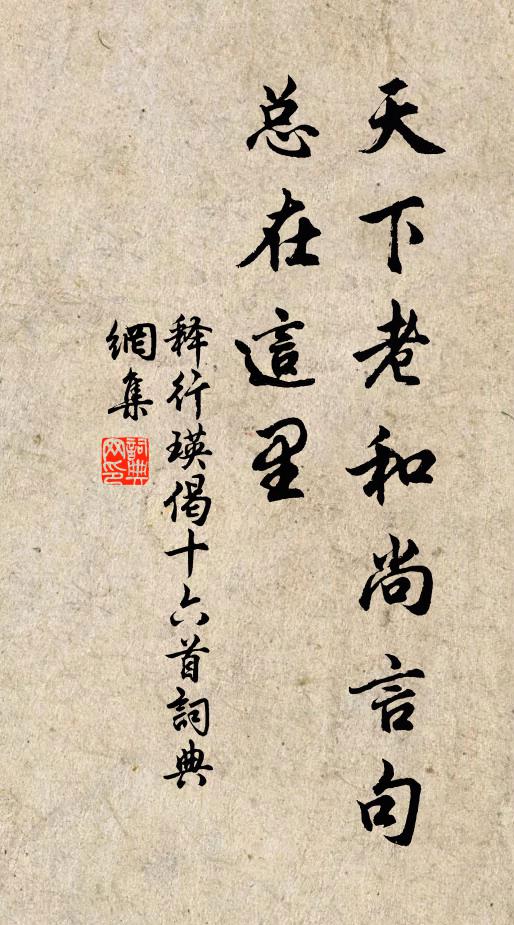 天下老和尚言句
总在這里
释行瑛偈十六首詞典
網集
詞典網印